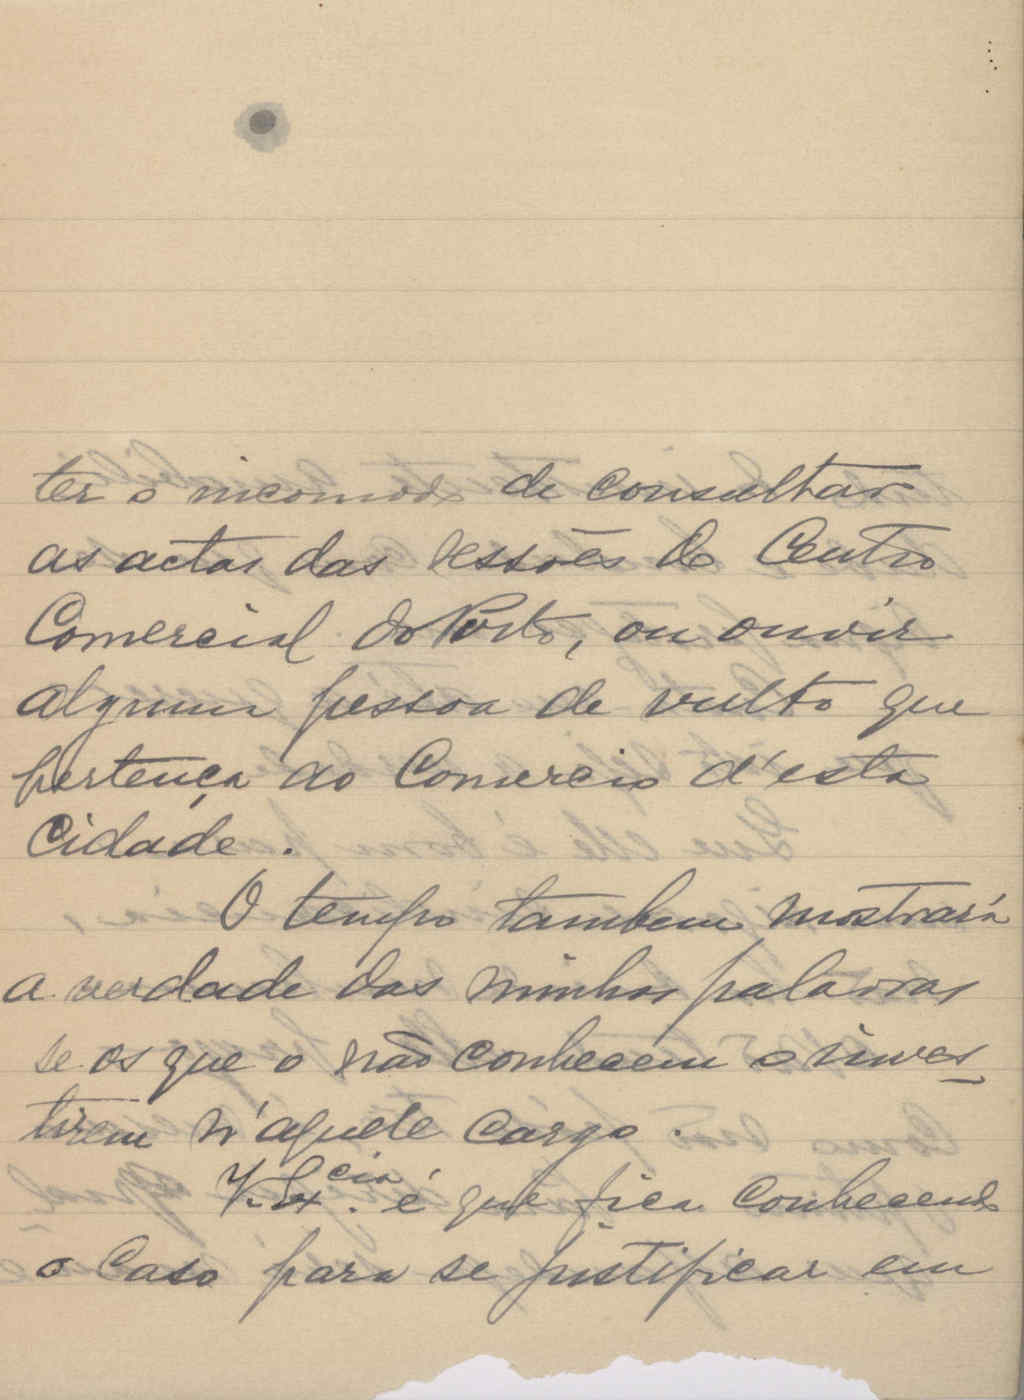 ter o incomodo de consultar
as actas das sessões do Centro
Comercial do Porto, ou ouvir
alguma pessoa de vulto que
pertença ao Comercio d'esta
Cidade.
O tempo tambem mostrará
a verdade das minhas palavras
se os que o não conhecem o inves-
tirem n'aquele cargo.
V. Ex.cia é que fica conhecendo
o caso para se justificar em